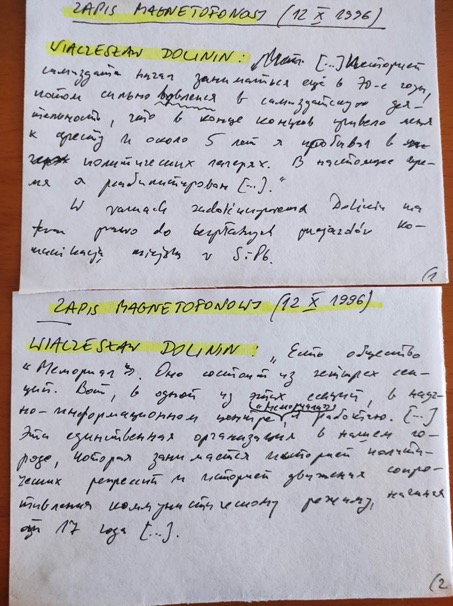 ZAPIS MAGNETOFONOWY (12 X 1996)
WIACZESŁAW DOLININ: [...] Историей
самиздата начал заниматься ещё в 70-е годы,
потом сильно в самиздатскую дея-
тельность, что в конце концов привело меня
к аресту и около 5 лет я пребывал в
политических лагерях. В настоящее вре-
мя я реабилитирован [...]."
W ramach zadośćuczynienia Dolinin ma
prawo do bezpłatnych przejazdów ko-
munikacją miejską w S-Pb.
(1
ZAPIS MAGNETOFONOWY (12 X 1996)
WIACZESŁAW DOLININ: „Есть общество
«Мемориал». Оно состоит из четырех сек-
ций. Вот, в одной из этих секций, в науч-
но-информационном центре «Мемориала» я работаю. [...]
Эта единственная организация в нашем го-
роде, которая занимается историей полити-
ческих репрессий и историей движения сопро-
тивления коммунистическому режиму, начиная
от 17 года [...].
(2